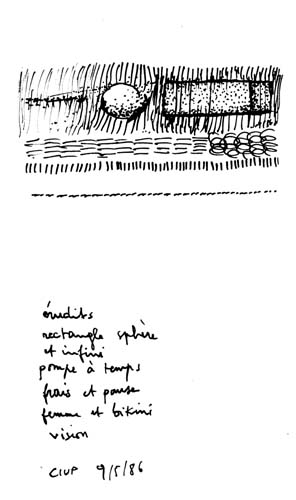 érudits
rectangle sphère
et infini
pompe à temps
frais et pause
femme et bikini
vision
CIUP 9/5/86